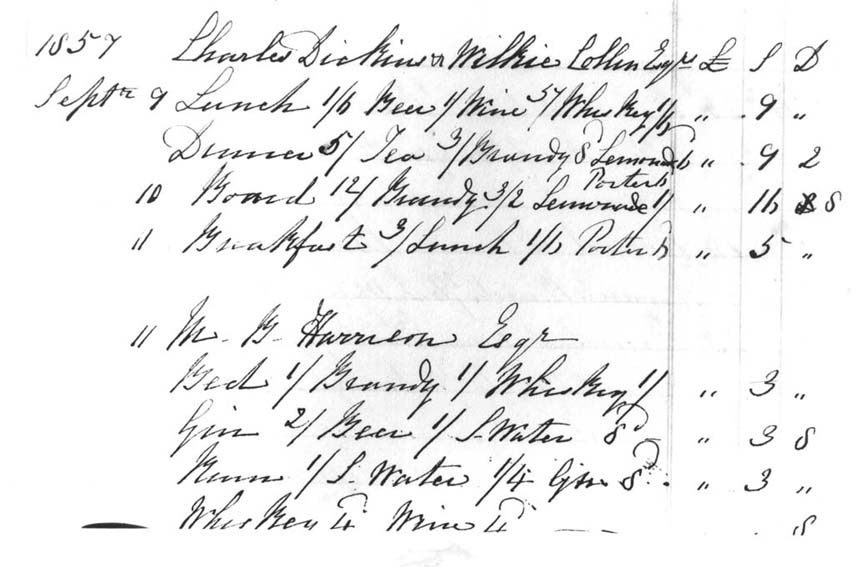 1857 Charles Dickins & Wilkie Collin Esqrs £ S D
Septr 9 Lunch 1/6 Beer 1/ Wine 5/ Whiskey 1/6 „ 9 „
Dinner 5/ Tea 3/ Brandy 8d Lemonade 6 „ 9 2
Porter 6
10 Board 12/ Brandy 3/2 Lemonade 1/ „ 16 8
11 Breakfast 3/ Lunch 1/6 Porter 6 „ 5 „
11 M. G. Harrison Esqr
Bed 1/ Brandy 1/ Whiskey 1/ „ 3 „
Gin 2/ Beer 1/ S. Water 8d „ 3 8
Rum 1/ S. Water 1/4 Gin 8d „ 3 „
Whiskey 4d Wine 4d — . 8